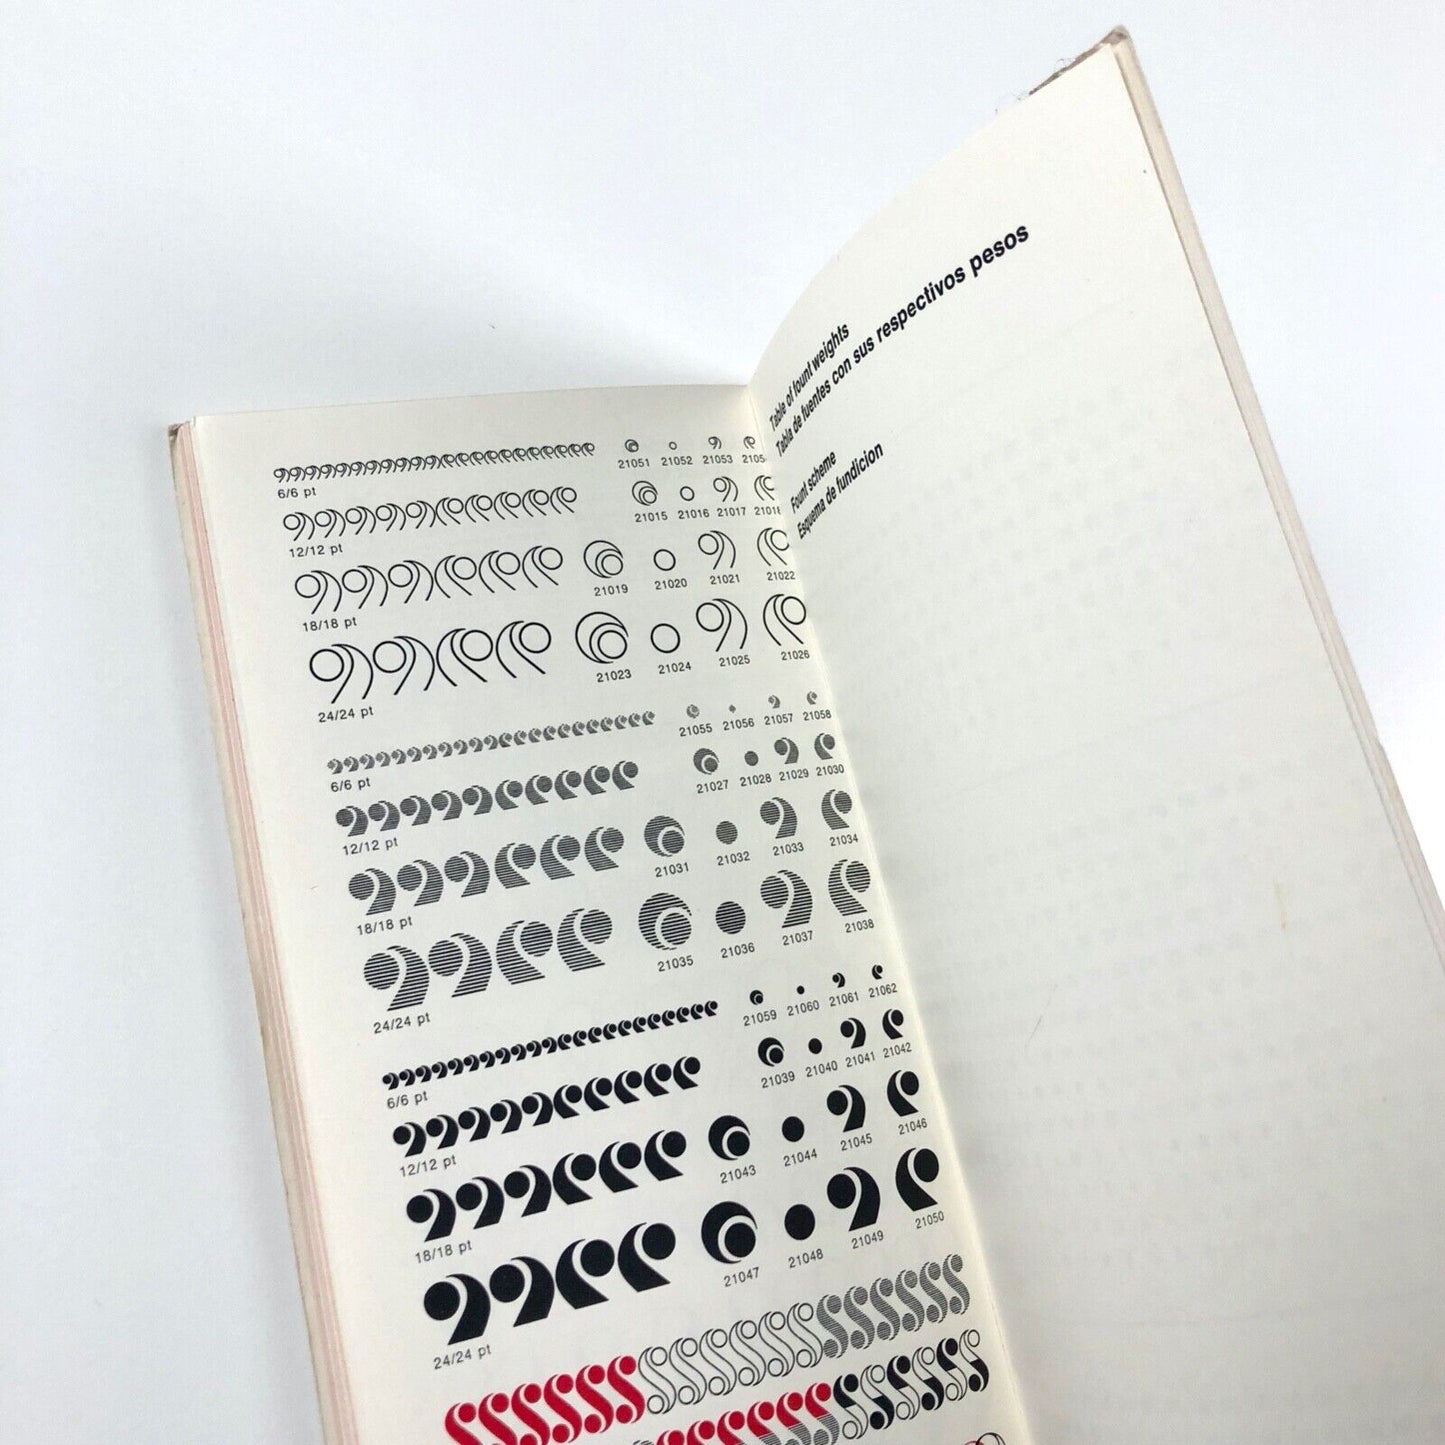 21051 21052 21053 21054
6/6 pt
21015 21016 21017 21018
12/12 pt
21019 21020 21021 21022
18/18 pt
21023 21024 21025 21026
24/24 pt
21055 21056 21057 21058
6/6 pt
21027 21028 21029 21030
12/12 pt
21031 21032 21033 21034
18/18 pt
21035 21036 21037 21038
24/24 pt
21059 21060 21061 21062
6/6 pt
21039 21040 21041 21042
12/12 pt
21043 21044 21045 21046
18/18 pt
21047 21048 21049 21050
24/24 pt
Table of fount weights
Tabla de fuentes con sus respectivos pesos
Fount scheme
Esquema de fundicion